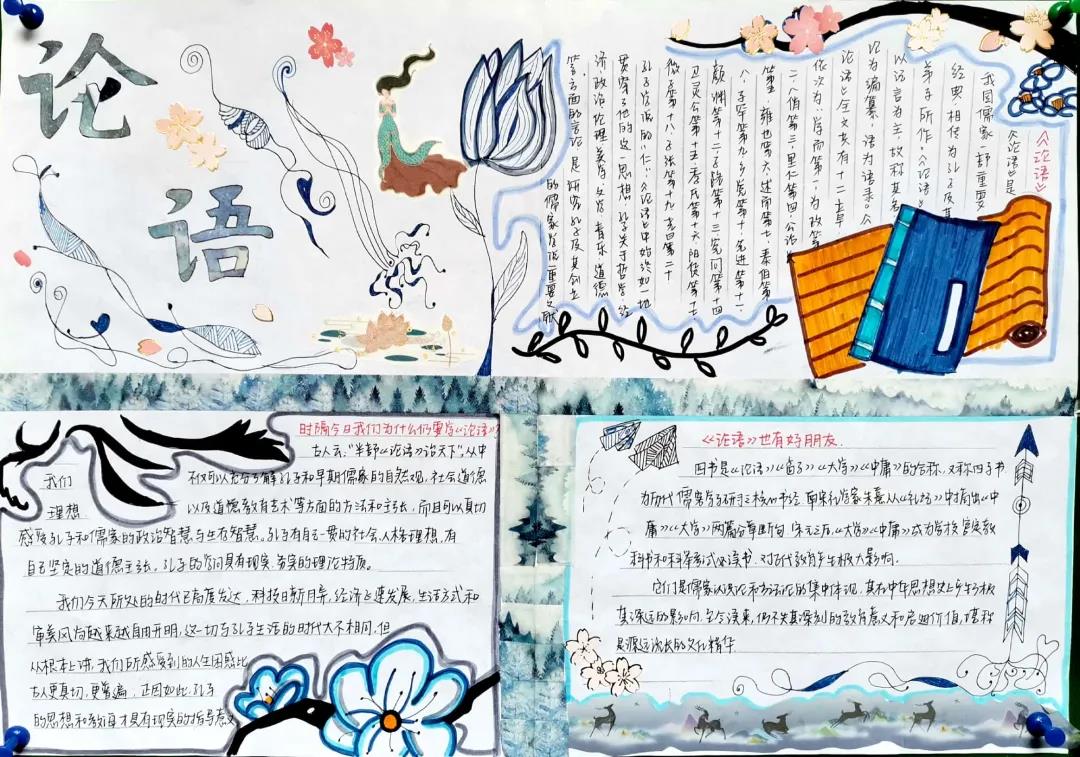 论
语
《论语》
《论语》是
我国儒家一部重要
经典,相传为孔子及其
弟子所作。《论语》
以记言为主,故称其为
论为编纂,语为语录。
论语》全文共有二十章
依次为:学而第一·为政第
二·八佾第三·里仁第四·公冶
第五·雍也第六·述而第七·泰伯第
八·子罕第九·乡党第十·先进第十一·
颜渊第十二·子路第十三·宪问第十四
卫灵公第十五·季氏第十六·阳货第十七
微子第十八·子张第十九·尧曰第二十
孔子学说的"仁"。《论语》中始终如一地
贯穿了他的这一思想,孔子关于哲学、经
济、政治、伦理、美学、文学、音乐、道德
等方面的言论,是研究孔子及其创立
的儒家学说重要文献
时隔今日我们为什么仍要学《论语》?
古人云:"半部《论语》治天下"。从中
我们不仅可以充分了解孔子和早期儒家的自然观、社会道德
理想以及道德教育艺术等方面的方法和主张,而且可以真切
感受孔子和儒家的政治智慧与生存智慧。孔子有自己一贯的社会、人格理想,有
自己坚定的道德主张。孔子的学问具有现实、务实的理论特质。
我们今天所处的时代已高度发达,科技日新月异,经济迅速发展,生活方式和
审美风尚越来越自由开明,这一切与孔子生活的时代大不相同,但
从根本上讲,我们所感受到的人生困惑比
古人更真切,更普遍,正因如此,孔子
的思想和教诲才具有现实的指导意义
《论语》也有好朋友.
四书是《论语》《孟子》《大学》《中庸》的合称,又称四子书
为历代儒客学子研习之核心书经,南宋理学家朱熹从《礼记》中摘出《中
庸》《大学》两篇分章断句,宋元之后,《大学》《中庸》成为学校官定教
科书和科举考试必读书,对古代教育产生极大影响.
它们是儒家认识论和方法论的集中体现,其在中华思想史上产生了极
其深远的影响,至今读来,仍不失其深刻的教育意义和启迪价值,堪称
是源远流长的文化精华.